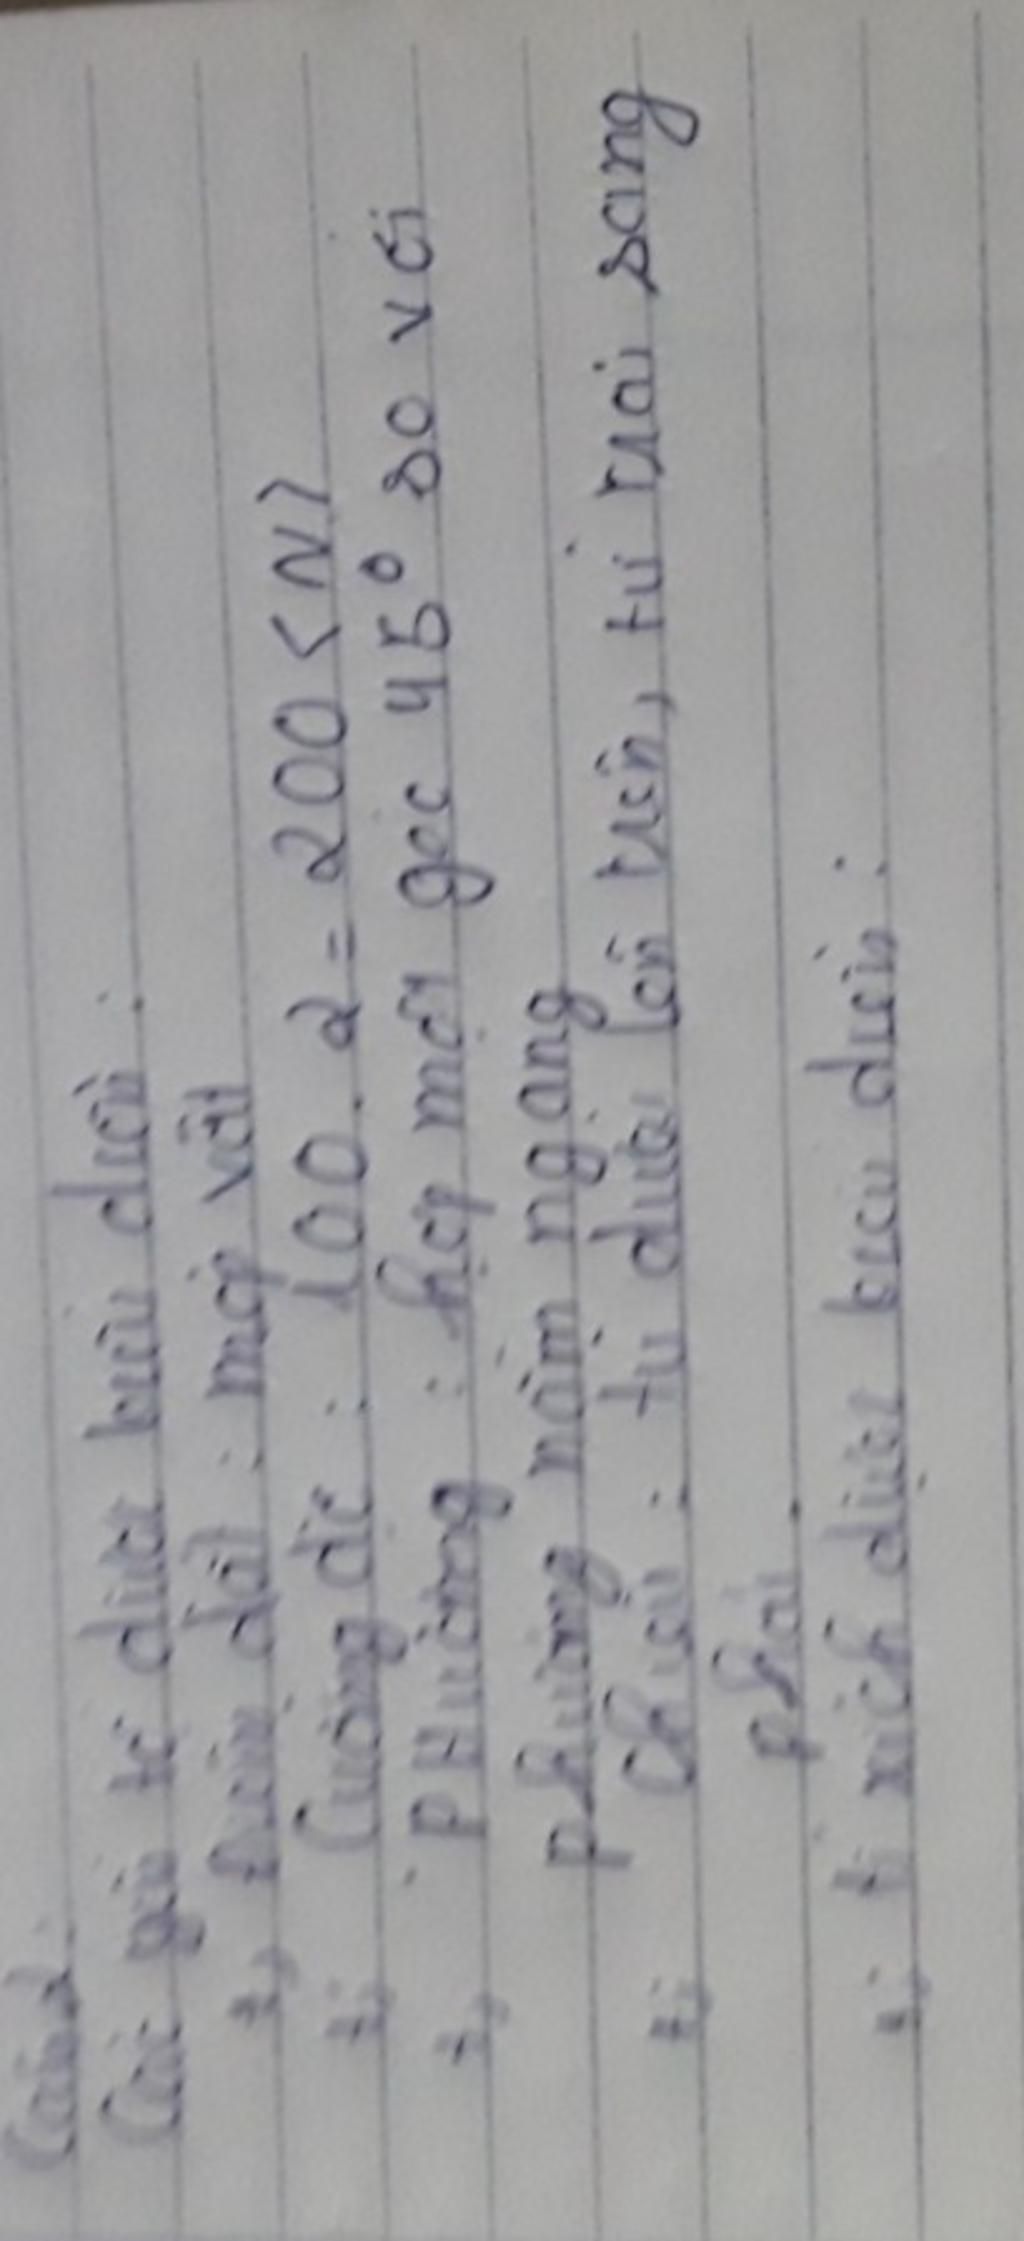 Câu 2
Các yếu tố được biểu diễn:
+, Điểm đặt: mép vật
+, Cường độ: 100.2 = 200 (N)
+, Phương: hợp một góc 45° so với
phương nằm ngang
+, Chiều: từ dưới lên trên, từ trái sang
phải
+, tỉ xích được biểu diễn: